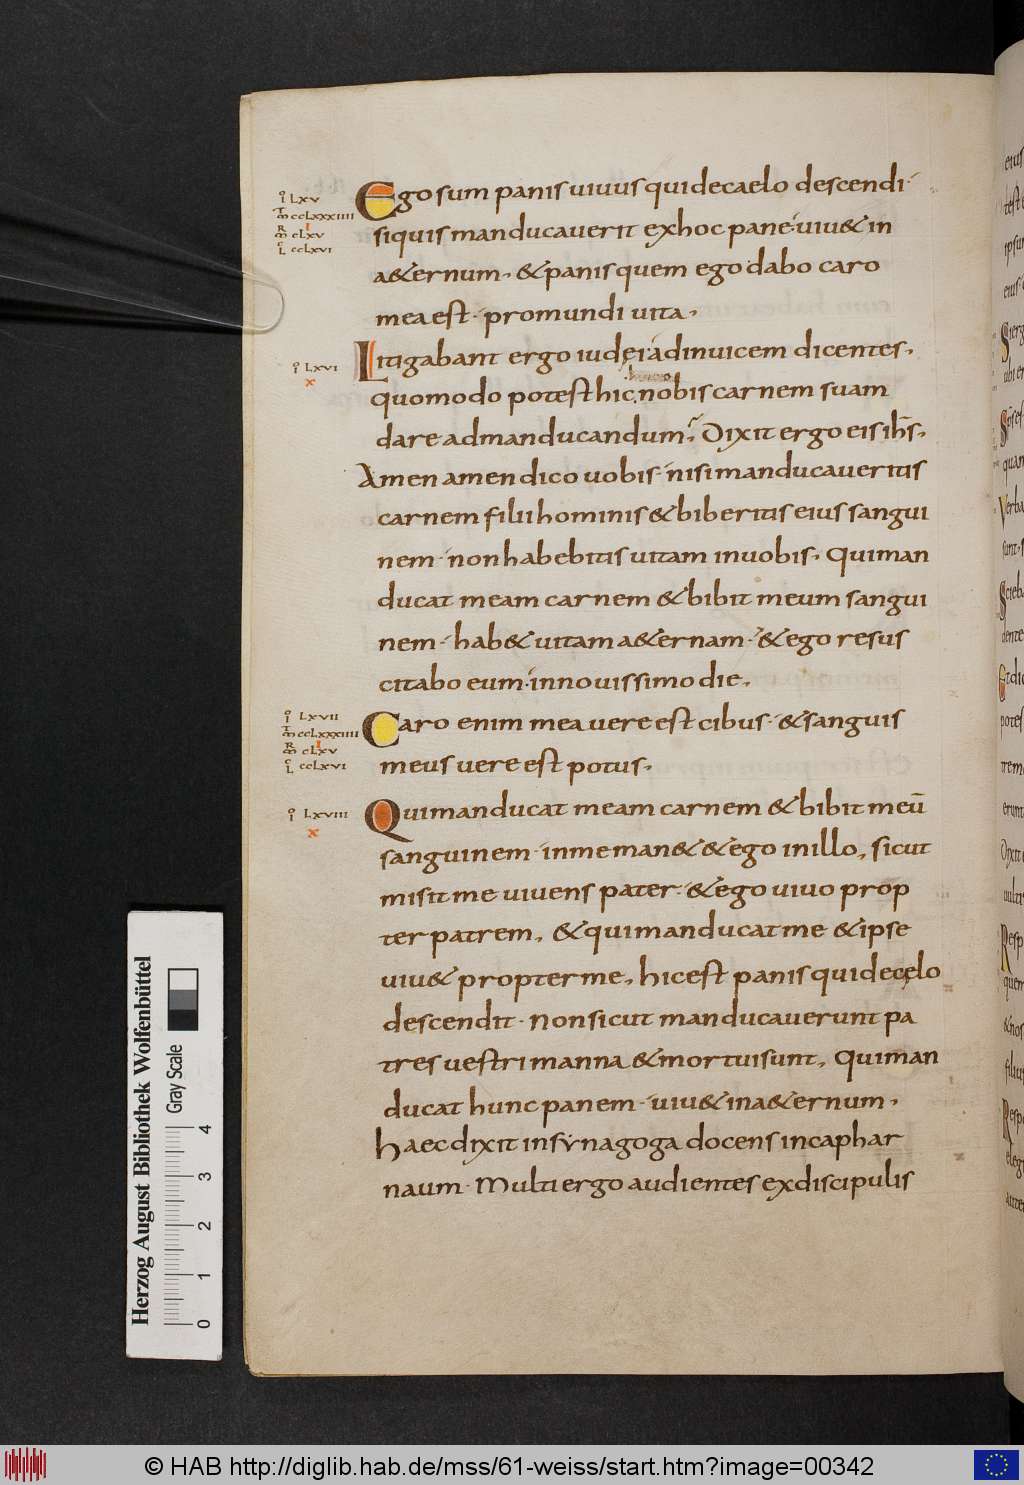 Ego sum panis uiuus qui de caelo descendi·
si quis manducauerit ex hoc pane· uiu& in
a&ernum, & panis quem ego dabo caro
mea est· pro mundi uita,
Litigabant ergo iudęi adinuicem dicentes,
quomodo potest hic nobis carnem suam
dare ad manducandum? Dixit ergo eis ih̅s,
Amen amen dico uobis· nisi manducaueritis
carnem filii hominis & biberitis eius sangui
nem· non habebitis uitam in uobis, Qui man
ducat meam carnem & bibit meum sangui
nem· hab& uitam a&ernam· & ego resus
citabo eum· in nouissimo die,
Caro enim mea uere est cibus· & sanguis
meus uere est potus,
Qui manducat meam carnem & bibit meū
sanguinem· in me man& & ego in illo, sicut
misit me uiuens pater· & ego uiuo prop
ter patrem, & qui manducat me & ipse
uiu& propter me, hic est panis qui de cęlo
descendit· Non sicut manducauerunt pa
tres uestri manna & mortui sunt, Qui man
ducat hunc panem· uiu& in a&ernum,
Haec dixit in synagoga docens in caphar
naum· Multi ergo audientes ex discipulis
LXV
CCLXXXIIII
CLXV
CCLXVI
LXVI
x
LXVII
CCLXXXIIII
CLXV
CCLXVI
LXVIII
x
Herzog August Bibliothek Wolfenbüttel
Gray Scale
0 1 2 3 4
© HAB http://diglib.hab.de/mss/61-weiss/start.htm?image=00342